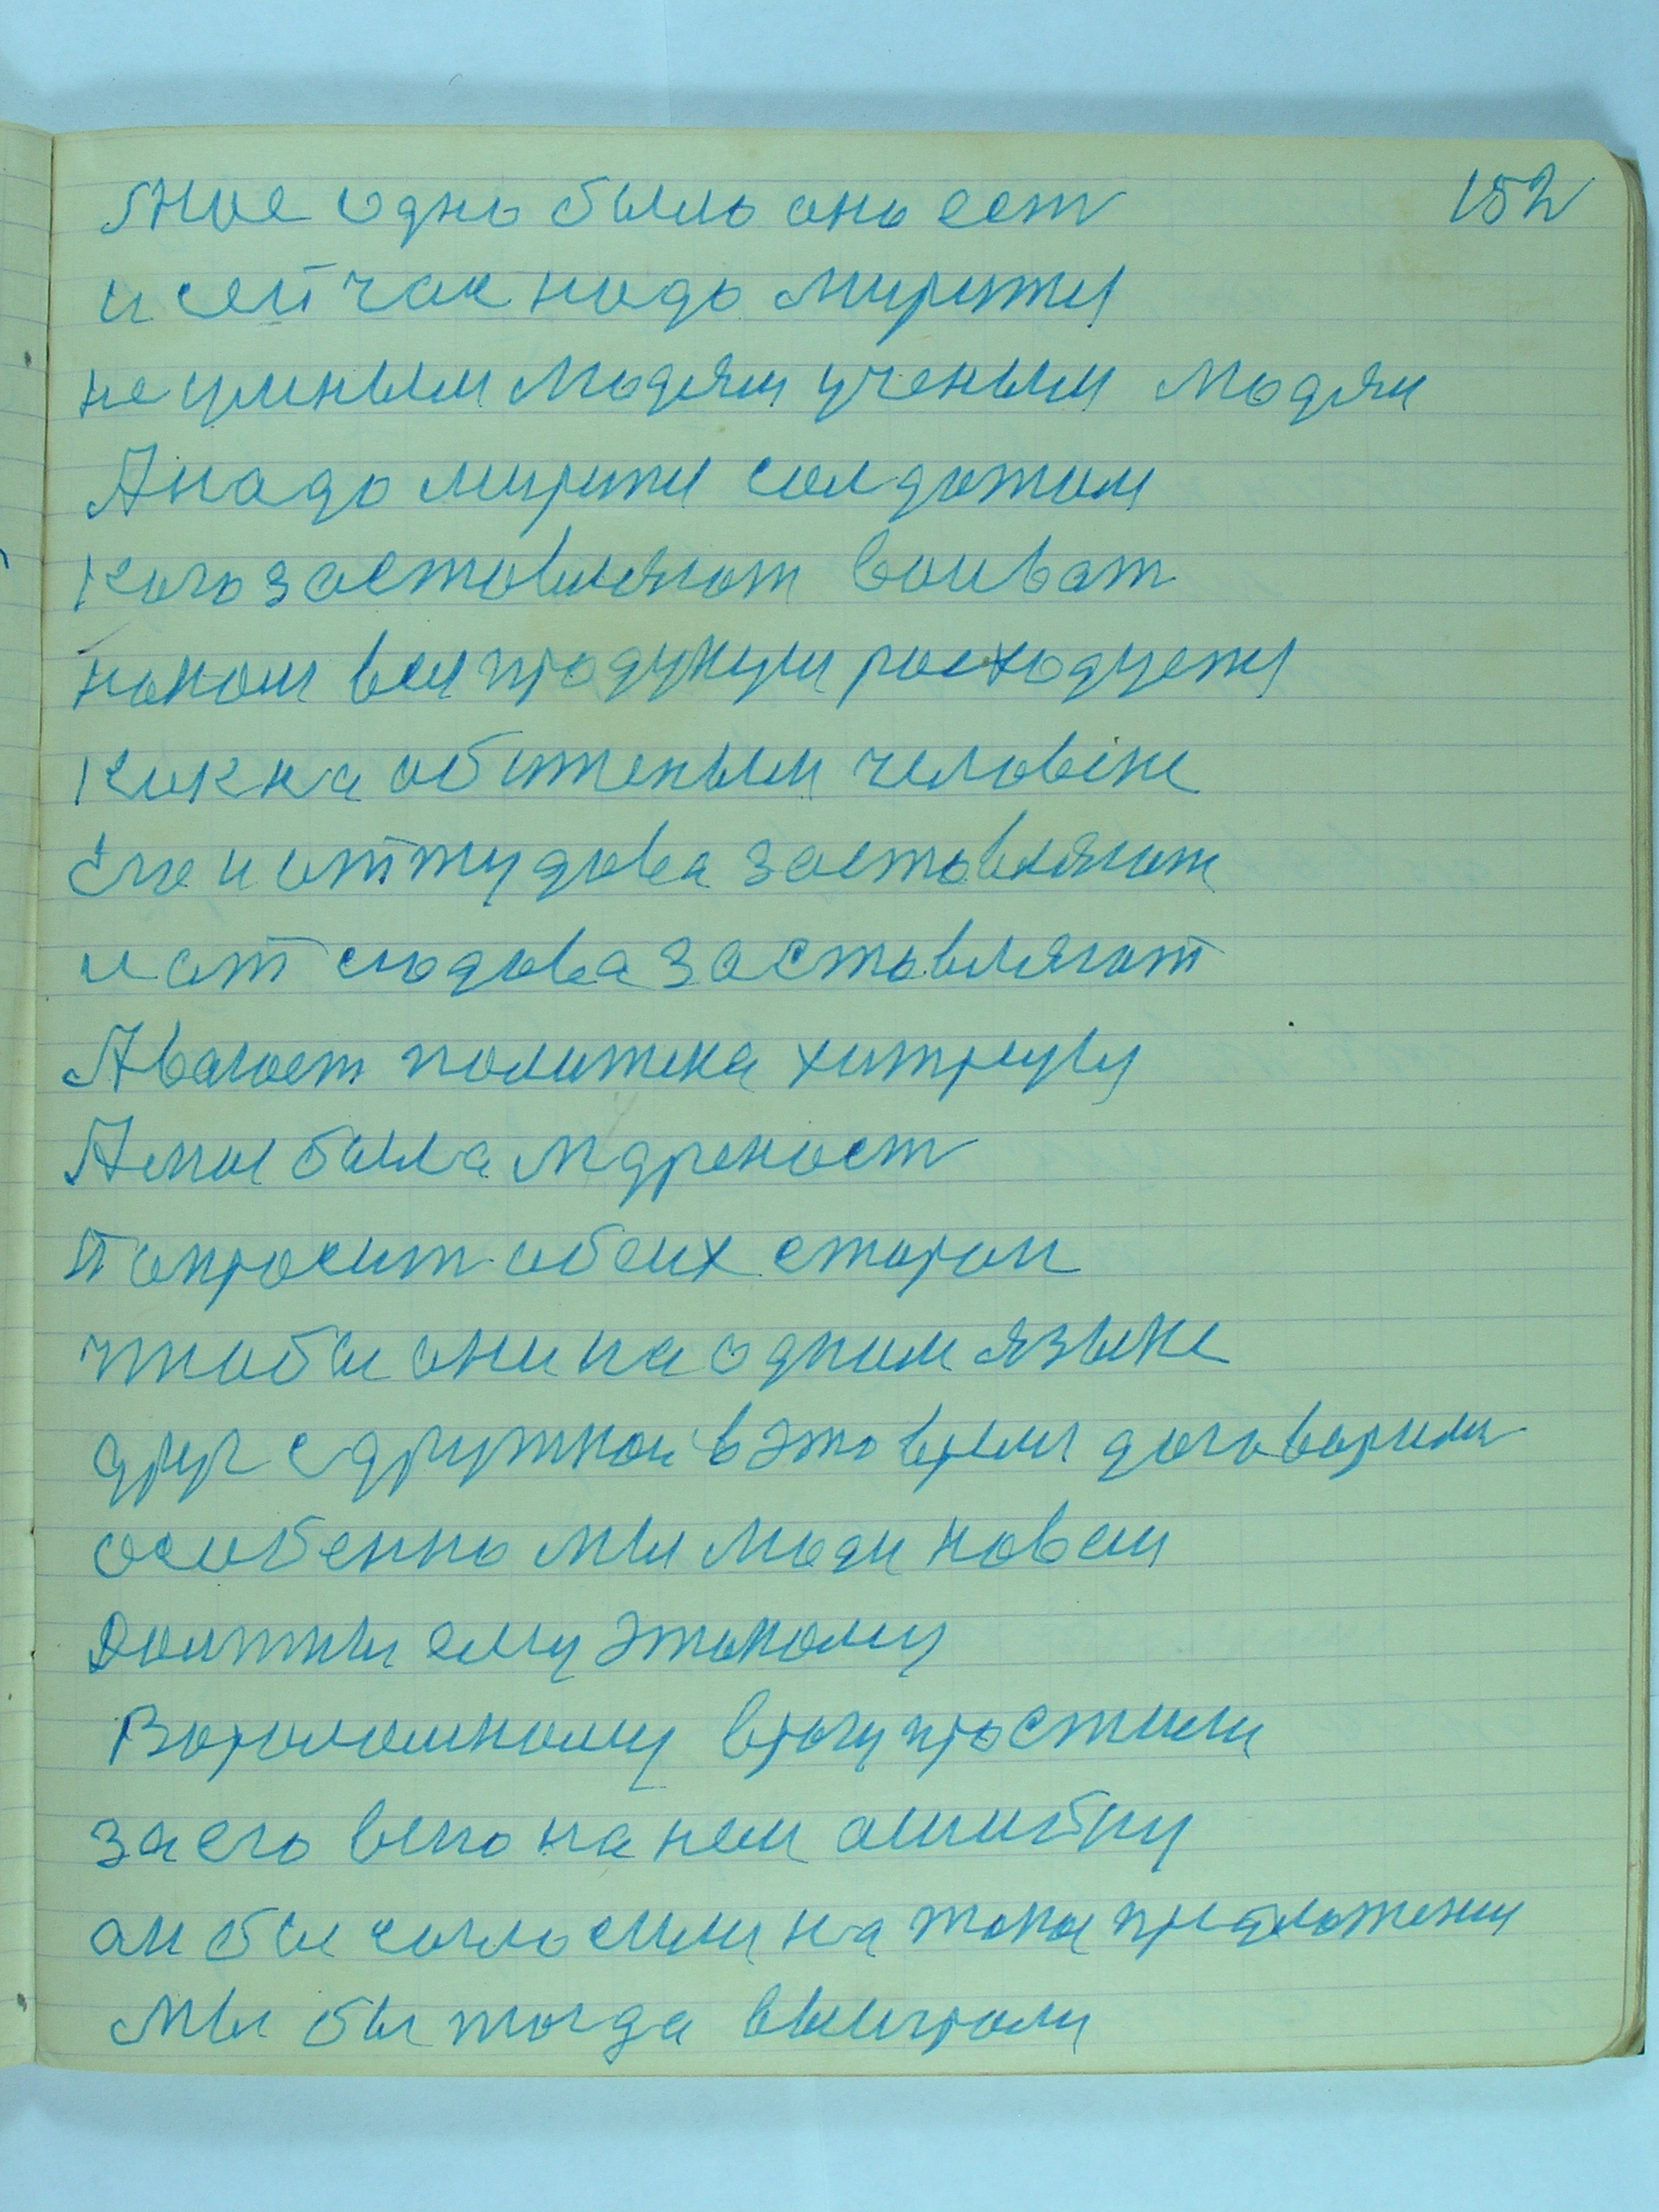 Мое одно было оно ест 152
и сейчас надо мирится
не умным людям ученым людям
А надо мирится солдатам
Кого заставляют воиват
на ком вся продукция расходуется
Как на обиженым человеке
Его и оттудова заставляют
и от сюдова заставляют
А вакост политика хитрецы
А моя была мдреност
Попросит обоих сторон
чтобы они на одном языке
друг с дружкой в это время договорили
особенно мы люди новые
Должны ему этакому
Вороломному врагу простили
за его вино на нем ошибку
он бы согласили на такое предложения
Мы бы тогда выиграли